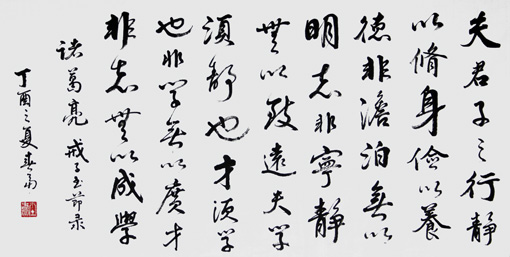 夫君子之行静
以脩身儉以養
德非澹泊無以
明志非寧静
無以致遠夫学
須静也才須学
也非学無以廣才
非志無以成學
諸葛亮 戒子书節录
丁酉之夏